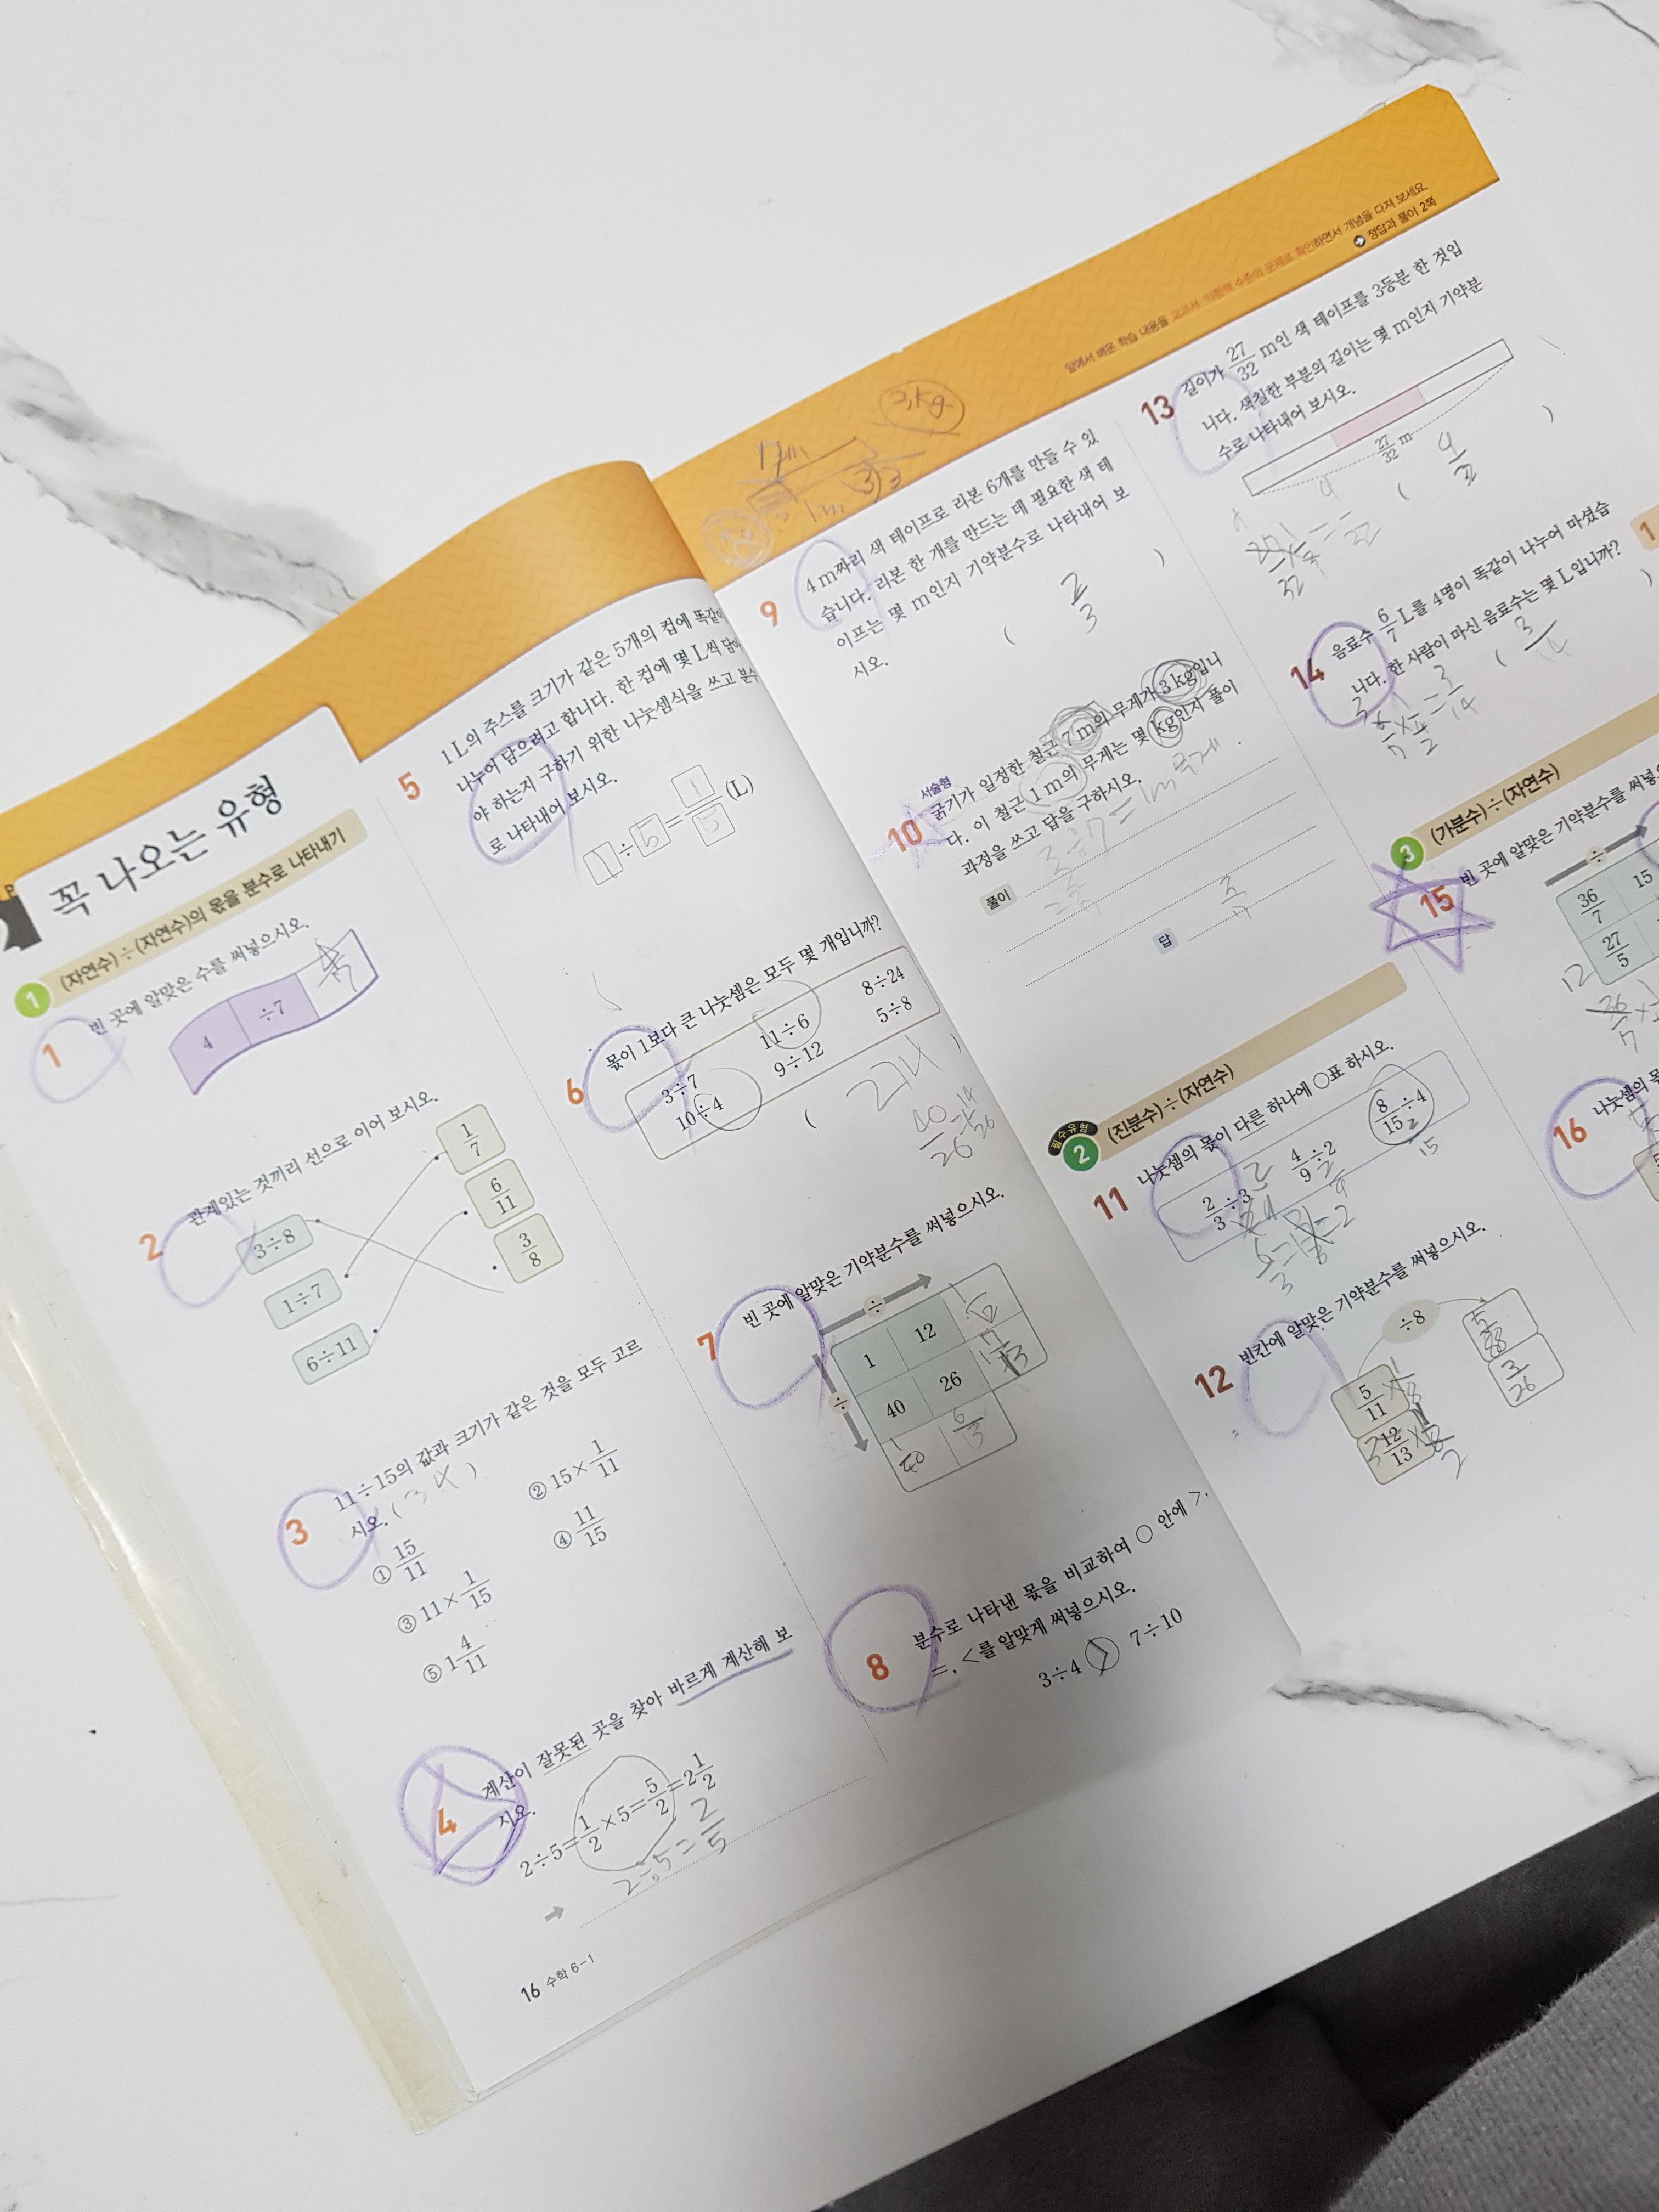 꼭 나오는 유형
1 (자연수)÷(자연수)의 몫을 분수로 나타내기
1 빈 곳에 알맞은 수를 써넣으시오.
4 ÷7
2 관계있는 것끼리 선으로 이어 보시오.
3÷8 1/7
1÷7 6/11
6÷11 3/8
3 11÷15의 값과 크기가 같은 것을 모두 고르
시오. ( 3 4 )
① 15/11 ② 15×1/11
③ 11×1/15 ④ 11/15
⑤ 1 4/11
4 계산이 잘못된 곳을 찾아 바르게 계산해 보
시오.
2÷5=1/2×5=5/2=2 1/2
➡ 2÷5=2/5
16 수학 6-1
5 1 L의 주스를 크기가 같은 5개의 컵에 똑같이
나누어 담으려고 합니다. 한 컵에 몇 L씩 담아
야 하는지 구하기 위한 나눗셈식을 쓰고 분수
로 나타내어 보시오.
1÷5=1/5 (L)
6 몫이 1보다 큰 나눗셈은 모두 몇 개입니까?
3÷7 11÷6 8÷24
10÷4 9÷12 5÷8
( 2개 )
7 빈 곳에 알맞은 기약분수를 써넣으시오.
÷
1 12 1/12
÷ 40 26
1/40 6/13
8 분수로 나타낸 몫을 비교하여 ○ 안에 >,
=, <를 알맞게 써넣으시오.
3÷4 > 7÷10
앞에서 배운 학습 내용을 교과서·익힘책 수준의 문제로 확인하면서 개념을 다져 보세요.
정답과 풀이 2쪽
3kg
1m
9 4 m짜리 색 테이프로 리본 6개를 만들 수 있
습니다. 리본 한 개를 만드는 데 필요한 색 테
이프는 몇 m인지 기약분수로 나타내어 보
시오.
( 2/3 )
서술형
10 굵기가 일정한 철근 7 m의 무게가 3 kg입니
다. 이 철근 1 m의 무게는 몇 kg인지 풀이
과정을 쓰고 답을 구하시오.
풀이 3÷7=1m 무게.
3/7
답 3/7
필수유형
2 (진분수)÷(자연수)
11 나눗셈의 몫이 다른 하나에 ○표 하시오.
2/3÷3 4/9÷2 8/15÷4
12 빈칸에 알맞은 기약분수를 써넣으시오.
÷8
5/11 5/88
12/13 3/26
13 길이가 27/32 m인 색 테이프를 3등분 한 것입
니다. 색칠한 부분의 길이는 몇 m인지 기약분
수로 나타내어 보시오.
27/32 m
14 음료수 6/7 L를 4명이 똑같이 나누어 마셨습
니다. 한 사람이 마신 음료수는 몇 L입니까?
( 3/14 )
3 (가분수)÷(자연수)
15 빈 곳에 알맞은 기약분수를 써넣
÷
36/7 15
27/5
12
16 나눗셈의 몫